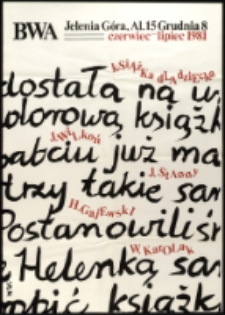 BWA Jelenia Góra, Al. 15 Grudnia 8
czerwiec-lipiec 1981
KSIĄŻKA dLA dziecka
dostała na u
olorową książk
J. WILKOŃ
babciu już ma
J. Stanny
trzy takie sam
H. Gajewski
Postanowiliśm
W. Karolak
e Helenką sam
robić książk